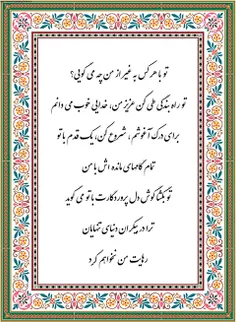 تو با هر کس به غیر از من چه می گویی؟
تو راه بندگی طی کن عزیز من، خدایی خوب می دانم
برای درک آغوشم، شروع کن، یک قدم با تو
تمام گامهای مانده اش با من
تو بگشا گوش دل پروردگارت با تو می گوید
ترا در بیکران دنیای تنهایان
رهایت من نخواهم کرد